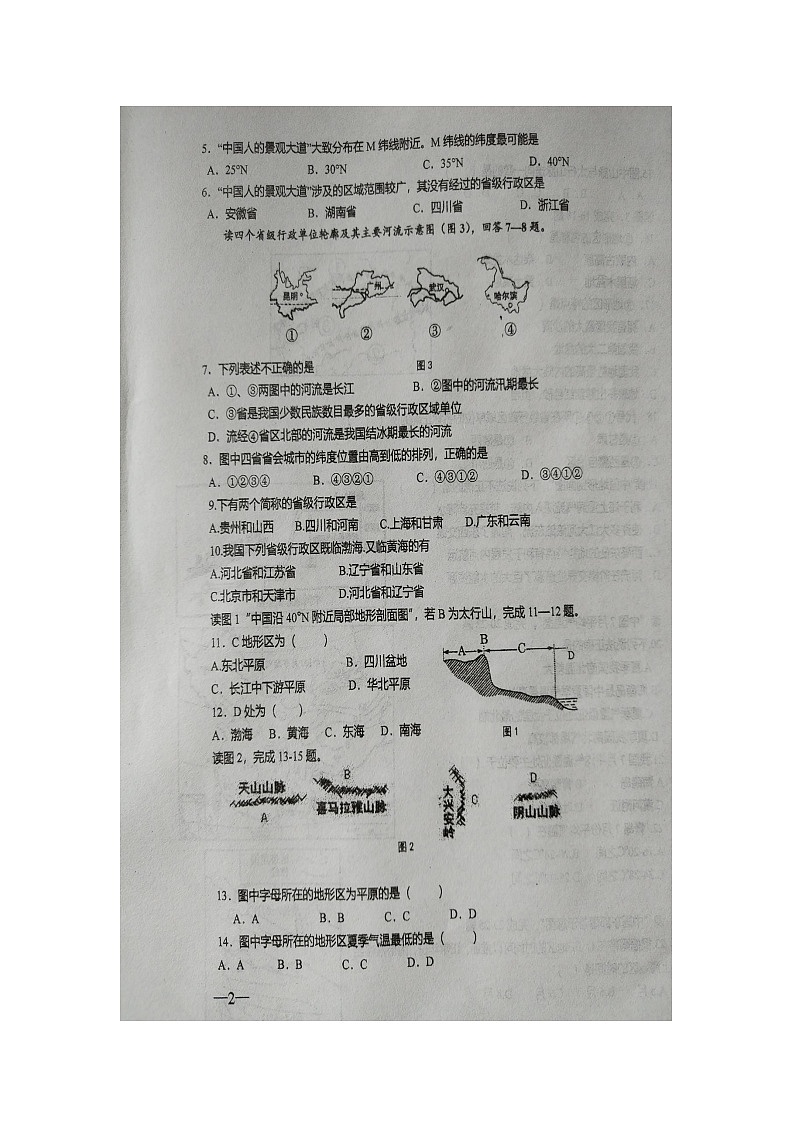 5．“中国人的景观大道”大致分布在 M 纬线附近。M 纬线的纬度最可能是
A．25°N B．30°N C．35°N D．40°N
6．“中国人的景观大道”涉及的区域范围较广，其没有经过的省级行政区是
A．安徽省 B．湖南省 C．四川省 D．浙江省
读四个省级行政单位轮廓及其主要河流示意图（图 3），回答 7—8 题。
昆明 广州 武汉 哈尔滨
① ② ③ ④
7．下列表述不正确的是 图 3
A．①、③两图中的河流是长江 B．②图中的河流汛期最长
C．③省是我国少数民族数目最多的省级行政区域单位
D．流经④省区北部的河流是我国结冰期最长的河流
8．图中四省省会城市的纬度位置由高到低的排列，正确的是
A．①②③④ B．④③②① C．④③①② D．③④①②
9.下有两个简称的省级行政区是
A.贵州和山西 B.四川和河南 C.上海和甘肃 D.广东和云南
10.我国下列省级行政区既临渤海.又临黄海的有
A.河北省和江苏省 B.辽宁省和山东省
C.北京市和天津市 D.河北省和辽宁省
读图 1“中国沿 40°N 附近局部地形剖面图”，若 B 为太行山，完成 11—12 题。
11．C 地形区为（ ）
A.东北平原 B．四川盆地
C．长江中下游平原 D．华北平原
A B C D
12．D 处为（ ）
A．渤海 B．黄海 C．东海 D．南海
图 1
读图 2，完成 13-15 题。
天山山脉 A
B 喜马拉雅山脉
大兴安岭 C
D 阴山山脉
图 2
13．图中字母所在的地形区为平原的是（ ）
A．A B．B C．C D．D
14．图中字母所在的地形区夏季气温最低的是（ ）
A．A B．B C．C D．D
—2—